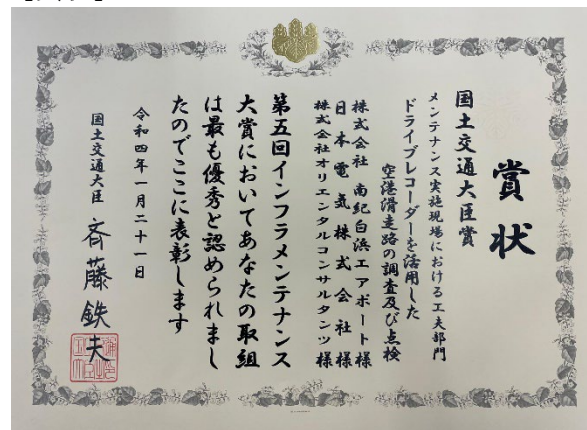 賞状
国土交通大臣賞
メンテナンス実施現場における工夫部門
ドライブレコーダーを活用した
空港滑走路の調査及び点検
株式会社 南紀白浜エアポート様
日本電気株式会社様
株式会社オリエンタルコンサルタンツ様
第五回インフラメンテナンス
大賞においてあなたの取組
は最も優秀と認められまし
たのでここに表彰します
令和四年一月二十一日
国土交通大臣 斉藤鉄夫